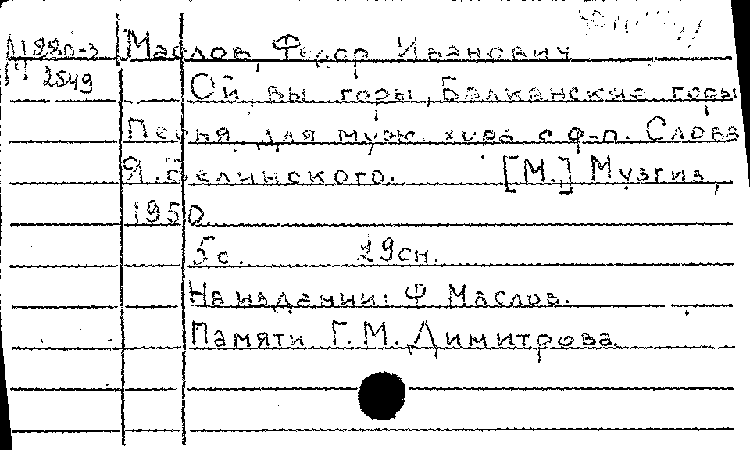 Маслов, Федор Иванович
2549
Ой, вы горы, Балканские горы
Песня для муж. хора с ф-п. Слова
Я. Белинского. [М.] Музгиз,
1950.
5 с. 29 см.
На издании: Ф Маслов.
Памяти Г. М. Димитрова